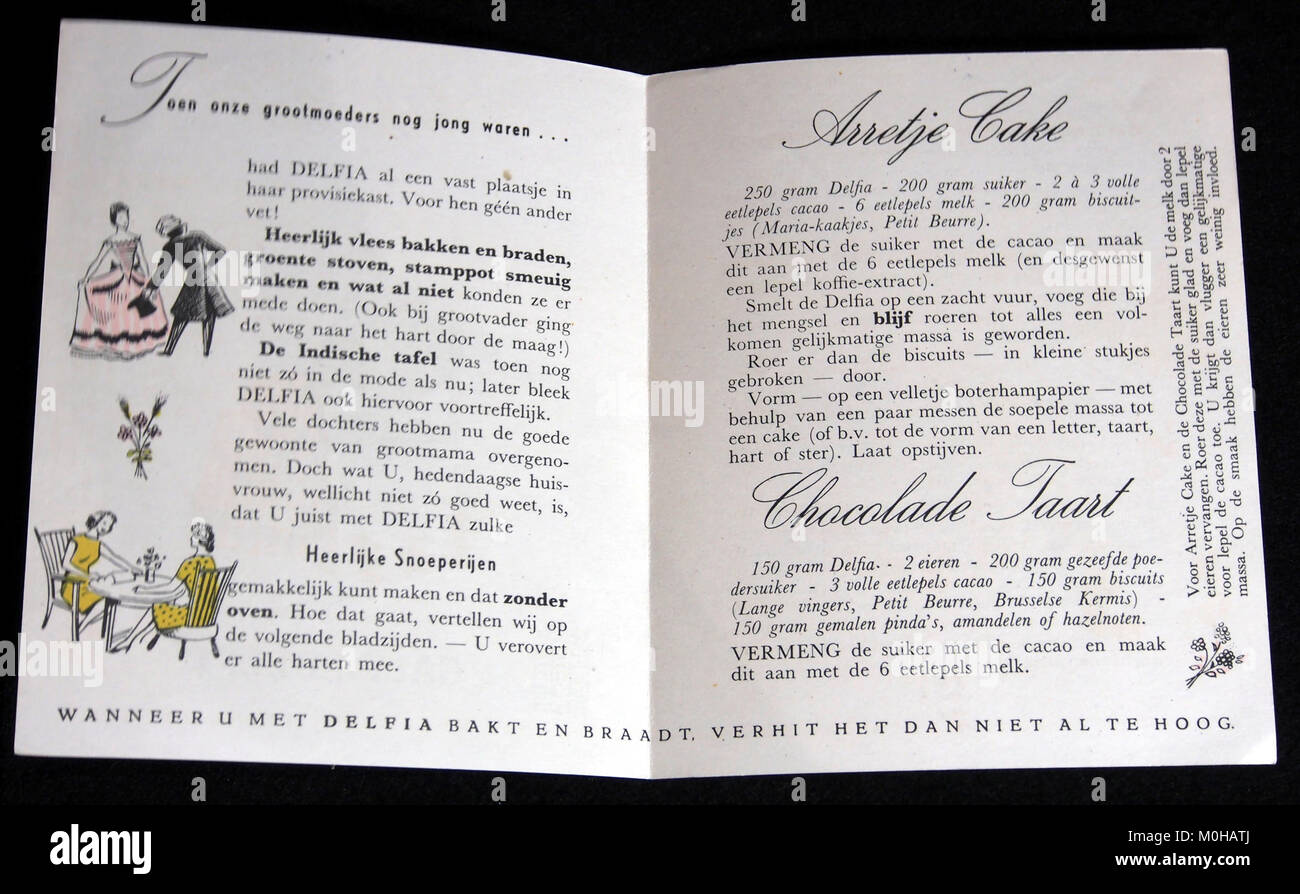 Toen onze grootmoeders nog jong waren . . .
had DELFIA al een vast plaatsje in
haar provisiekast. Voor hen géén ander
vet!
Heerlijk vlees bakken en braden,
groente stoven, stamppot smeuig
maken en wat al niet konden ze er
mede doen. (Ook bij grootvader ging
de weg naar het hart door de maag!)
De Indische tafel was toen nog
niet zó in de mode als nu; later bleek
DELFIA ook hiervoor voortreffelijk.
Vele dochters hebben nu de goede
gewoonte van grootmama overgeno-
men. Doch wat U, hedendaagse huis-
vrouw, wellicht niet zó goed weet, is,
dat U juist met DELFIA zulke
Heerlijke Snoeperijen
gemakkelijk kunt maken en dat zonder
oven. Hoe dat gaat, vertellen wij op
de volgende bladzijden. — U verovert
er alle harten mee.
Arretje Cake
250 gram Delfia - 200 gram suiker - 2 à 3 volle
eetlepels cacao - 6 eetlepels melk - 200 gram biscuit-
jes (Maria-kaakjes, Petit Beurre).
VERMENG de suiker met de cacao en maak
dit aan met de 6 eetlepels melk (en desgewenst
een lepel koffie-extract).
Smelt de Delfia op een zacht vuur, voeg die bij
het mengsel en blijf roeren tot alles een vol-
komen gelijkmatige massa is geworden.
Roer er dan de biscuits — in kleine stukjes
gebroken — door.
Vorm — op een velletje boterhampapier — met
behulp van een paar messen de soepele massa tot
een cake (of b.v. tot de vorm van een letter, taart,
hart of ster). Laat opstijven.
Chocolade Taart
150 gram Delfia - 2 eieren - 200 gram gezeefde poe-
dersuiker - 3 volle eetlepels cacao - 150 gram biscuits
(Lange vingers, Petit Beurre, Brusselse Kermis) -
150 gram gemalen pinda's, amandelen of hazelnoten.
VERMENG de suiker met de cacao en maak
dit aan met de 6 eetlepels melk.
Voor Arretje Cake en de Chocolade Taart kunt U de melk door 2
eieren vervangen. Roer deze met de suiker glad en voeg dan lepel
voor lepel de cacao toe. U krijgt dan vlugger een gelijkmatige
massa. Op de smaak hebben de eieren zeer weinig invloed.
WANNEER U MET DELFIA BAKT EN BRAADT, VERHIT HET DAN NIET AL TE HOOG.
a
alamy
Image ID: M0HATJ
www.alamy.com